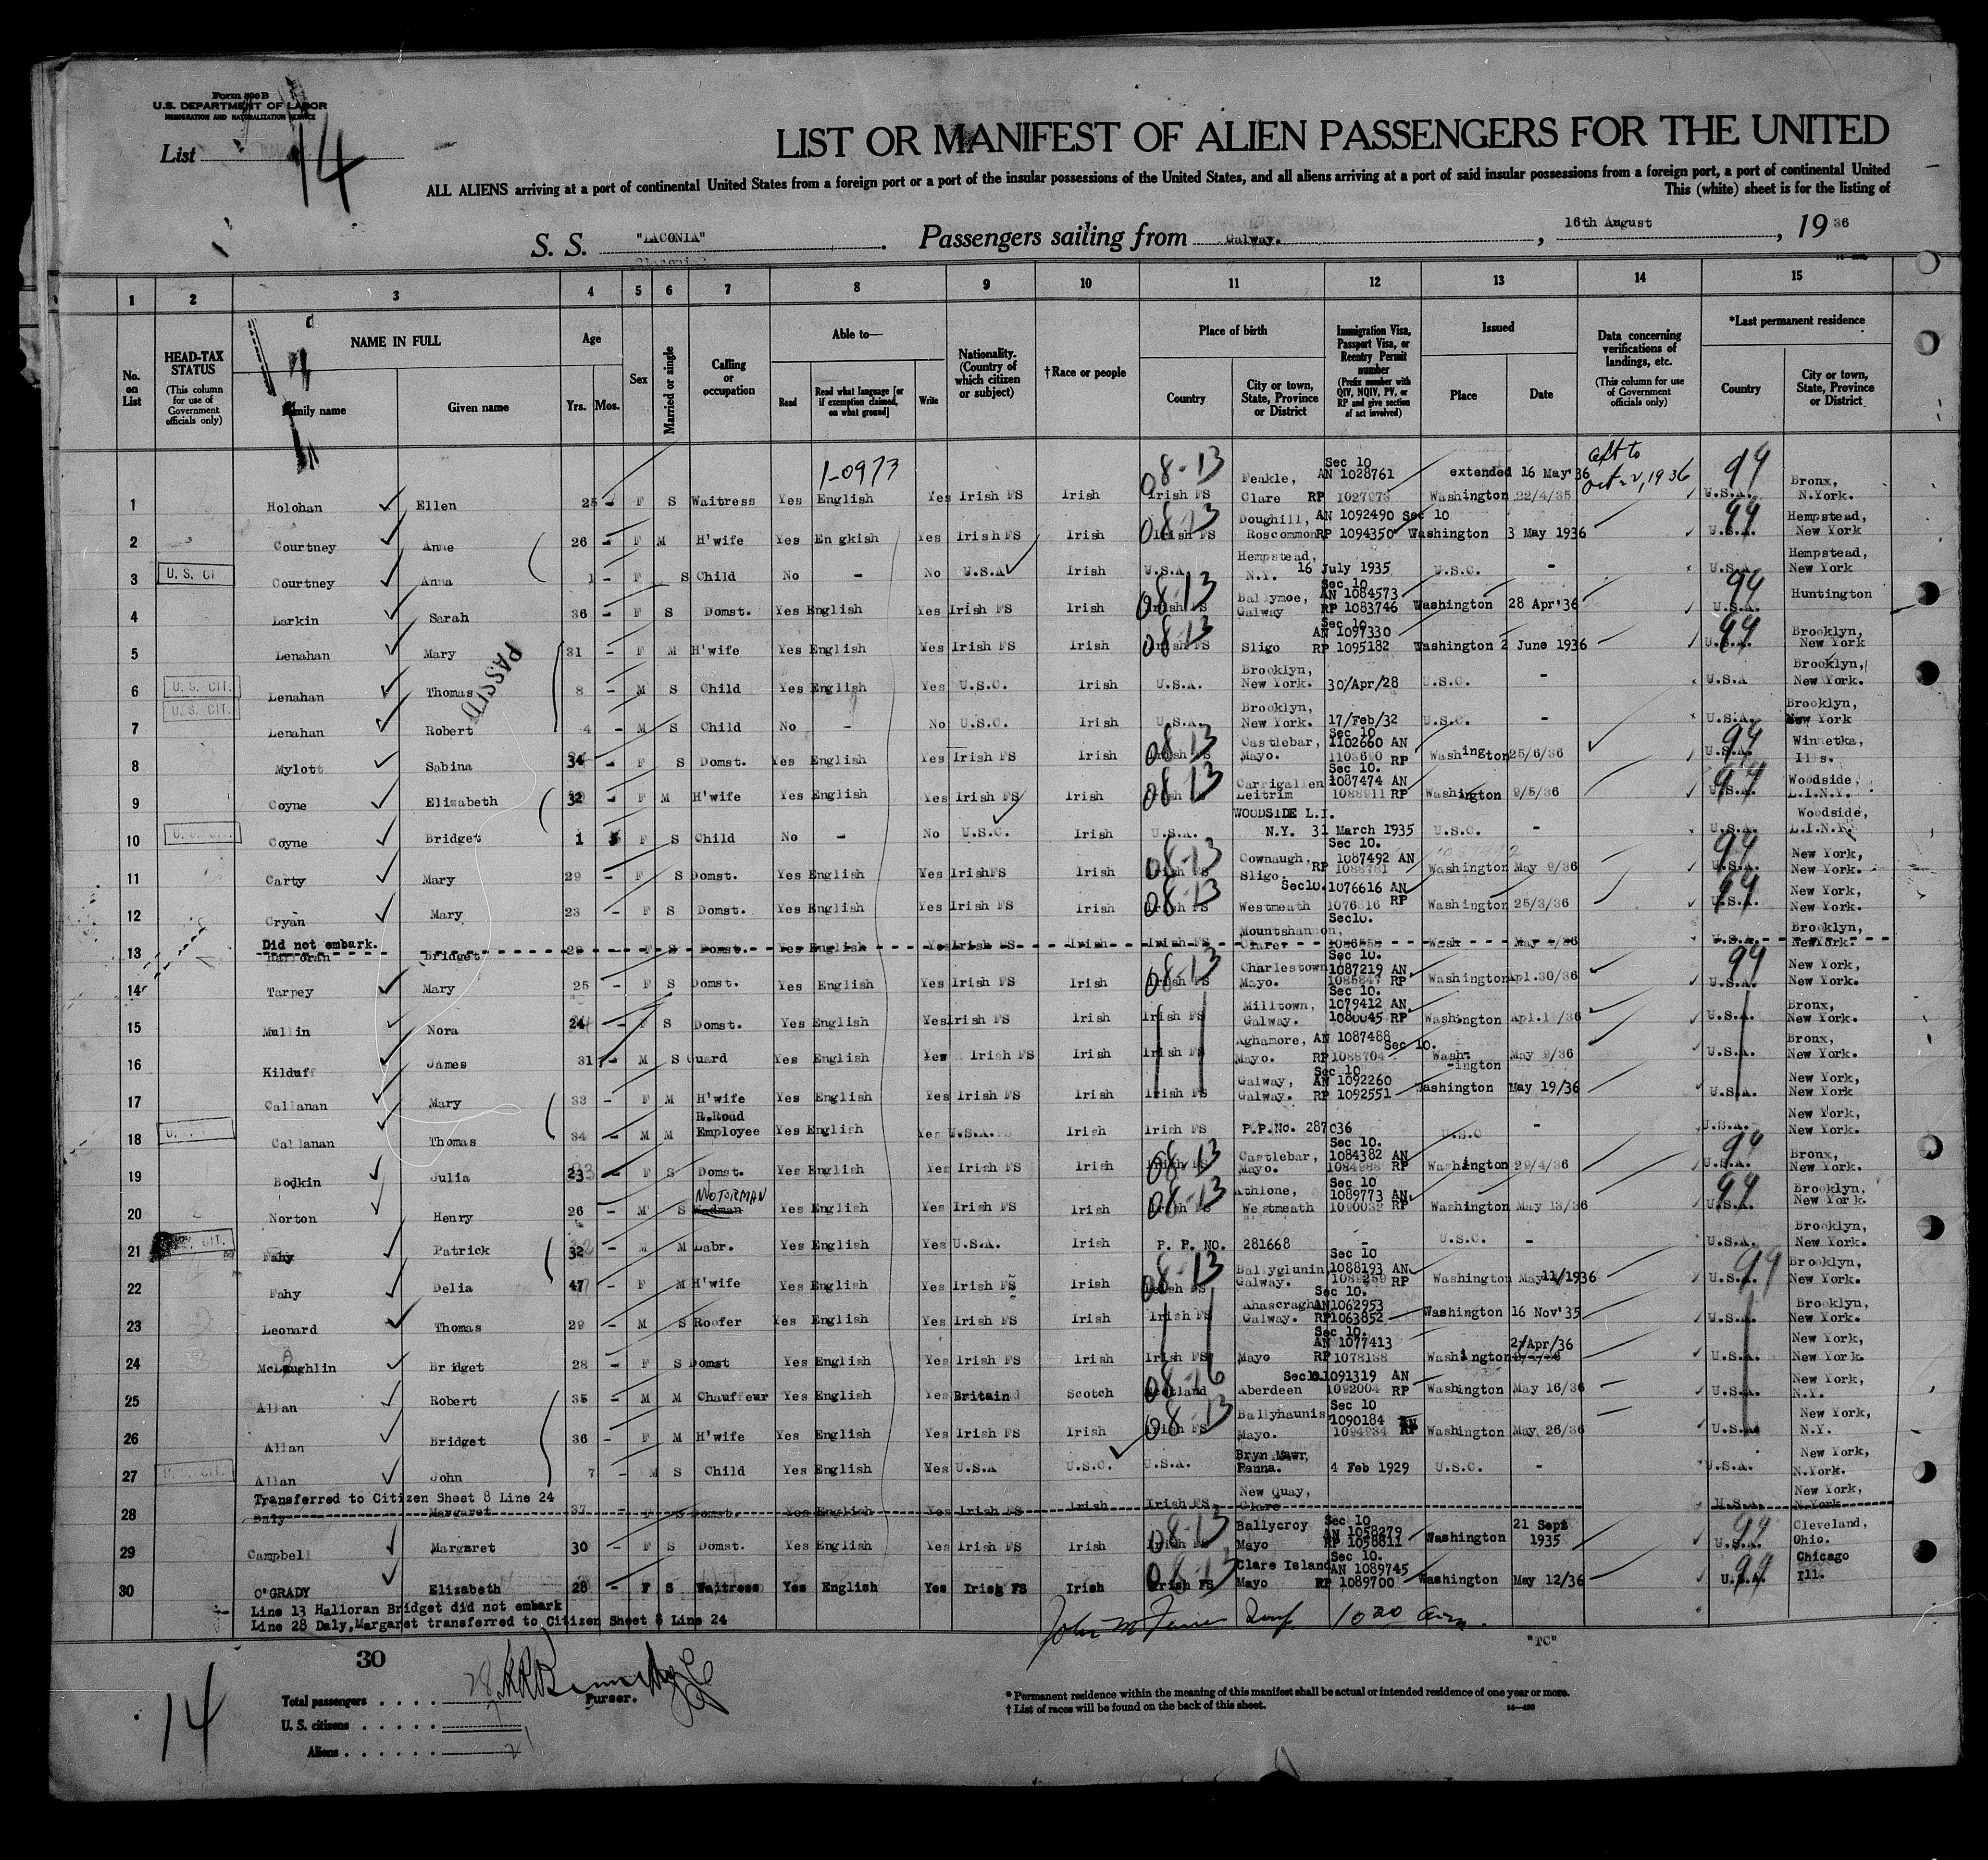 Form 500 B
U.S. DEPARTMENT OF LABOR
IMMIGRATION AND NATURALIZATION SERVICE
List 14
LIST OR MANIFEST OF ALIEN PASSENGERS FOR THE UNITED
ALL ALIENS arriving at a port of continental United States from a foreign port or a port of the insular possessions of the United States, and all aliens arriving at a port of said insular possessions from a foreign port, a port of continental United
This (white) sheet is for the listing of
S. S. "LACONIA". Passengers sailing from Galway., 16th August, 1936
1 2 3 4 5 6 7 8 9 10 11 12 13 14 15
No. on List
HEAD-TAX STATUS (This column for use of Government officials only)
NAME IN FULL Family name Given name
Age Yrs. Mos.
Sex
Married or single
Calling or occupation
Able to— Read Read what language [or if exemption claimed, on what ground] Write
Nationality. (Country of which citizen or subject)
†Race or people
Place of birth Country City or town, State, Province or District
Immigration Visa, Passport Visa, or Reentry Permit number (Prefix number with QIV, NQIV, PV, or RP and give section of act involved)
Issued Place Date
Data concerning verifications of landings, etc. (This column for use of Government officials only)
*Last permanent residence Country City or town, State, Province or District
1-0973
1 Holohan Ellen 25 - F S Waitress Yes English Yes Irish FS Irish 08-13 Irish FS Feakle, Clare Sec 10 AN 1028761 RP 1027973 extended 16 May'36 Washington 22/4/35 Oct 22, 1936 94 U.S.A. Bronx, N.York.
2 Courtney Anne 26 - F M H'wife Yes Engkish Yes Irish FS Irish 08-13 Irish FS Doughill, Roscommon AN 1092490 Sec 10 RP 1094350 Washington 3 May 1936 94 U.S.A. Hempstead, New York
3 U.S. CI Courtney Anna 1 - F S Child No - No U.S.A Irish U.S.A. Hempstead, N.Y. 16 July 1935 U.S.C. - U.S.A. Hempstead, New York
4 Larkin Sarah 36 - F S Domst. Yes English Yes Irish FS Irish 08-13 Irish FS Ballymoe, Galway Sec 10 AN 1084573 RP 1083746 Washington 28 Apr'36 94 U.S.A. Huntington
5 Lenahan Mary 31 - F M H'wife Yes English Yes Irish FS Irish 08-13 Irish FS Sligo Sec 10 AN 1097330 RP 1095182 Washington 2 June 1936 94 U.S.A. Brooklyn, New York
PASSED
6 U. S. CIT. Lenahan Thomas 8 - M S Child Yes English Yes U.S.C. Irish U.S.A. Brooklyn, New York. 30/Apr/28 U.S.C. - U.S.A Brooklyn, New York.
7 U. S. CIT. Lenahan Robert 4 - M S Child No - No U.S.C. Irish U.S.A. Brooklyn, New York. 17/Feb/32 U.S.C. - U.S.A. Brooklyn, New York
8 Mylott Sabina 34 - F S Domst. Yes English Yes Irish FS Irish 08-13 Irish FS Castlebar, Mayo. Sec 10 1102660 AN 1103690 RP Washington 25/6/36 94 U.S.A. Winnetka, Ills.
9 Coyne Elizabeth 32 - F M H'wife Yes English Yes Irish FS Irish 08-13 Irish FS Carrigallen Leitrim Sec 10. 1087474 AN 1088911 RP Washington 9/5/36 94 U.S.A. Woodside, L.I.N.Y.
10 Coyne Bridget 1 F S Child No - No U.S.C. Irish U.S.A. WOODSIDE L.I. N.Y. 31 March 1935 U.S.C. - U.S.A. Woodside, L.I.N.Y.
11 Carty Mary 29 - F S Domst. Yes English Yes Irish FS Irish 08-13 Irish FS Cownaugh, Sligo. Sec 10. 1087492 AN RP 1088781 Washington May 9/36 94 U.S.A. New York, New York.
12 Cryan Mary 23 - F S Domst. Yes English Yes Irish FS Irish 08-13 Irish FS Westmeath Sec10. 1076616 AN 1076816 RP Washington 25/3/36 94 U.S.A. New York, New York.
13 Did not embark. Halloran Bridget F S Domst. Yes English Yes Irish FS Irish Irish FS Mountshannon, Clare Sec10. Wash May U.S.A. Brooklyn, New York.
14 Tarpey Mary 25 - F S Domst. Yes English Yes Irish FS Irish 08-13 Irish FS Charlestown Mayo. Sec 10. 1087219 AN 1085847 RP Washington Apl.30/36 94 U.S.A. New York, New York.
15 Mullin Nora 24 - F S Domst. Yes English Yes Irish FS Irish Irish FS Milltown, Galway. Sec 10. 1079412 AN 1080045 RP Washington U.S.A. Bronx, New York.
16 Kilduff James 31 - M S Guard Yes English Yes Irish FS Irish Irish FS Aghamore, Mayo. AN 1087488 Sec 10. RP 1088704 Wash-ington May 9/36 U.S.A. Bronx, New York.
17 Callanan Mary 33 - F M H'wife Yes English Yes Irish FS Irish Irish FS Galway, Galway. Sec 10 AN 1092260 RP 1092551 Washington May 19/36 U.S.A. New York, New York.
18 Callanan Thomas 34 - M M R.Road Employee Yes English Yes U.S.A. Irish Irish FS P.P.No. 287036 U.S.C - U.S.A. New York, New York.
19 Bodkin Julia 23 - F S Domst. Yes English Yes Irish FS Irish 08-13 Irish FS Castlebar, Mayo. Sec 10. 1084382 AN 1084988 RP Washington 29/4/36 94 U.S.A. Bronx, New York.
20 Norton Henry 26 - M S MOTORMAN Yes English Yes Irish FS Irish 08-13 Irish FS Athlone, Westmeath Sec 10 1089773 AN 1090032 RP Washington May 13/36 94 U.S.A. Brooklyn, New York.
21 CIT. Fahy Patrick 32 - M M Labr. Yes English Yes U.S.A. Irish P. P. NO. 281668 - U.S.C. - U.S.A. Brooklyn, New York.
22 Fahy Delia 47 - F M H'wife Yes English Yes Irish FS Irish 08-13 Irish FS Ballyglunin Galway. Sec 10 1088193 AN 1089259 RP Washington May 11/1936 94 U.S.A. Brooklyn, New York.
23 Leonard Thomas 29 - M S Roofer Yes English Yes Irish FS Irish Irish FS Ahascragh Galway. Sec 10. AN 1062953 RP 1063852 Washington 16 Nov'35 U.S.A. Brooklyn, New York.
24 McLaughlin Bridget 28 - F S Domst Yes English Yes Irish FS Irish Irish FS Mayo Sec 10. AN 1077413 RP 1078138 Washington 2/Apr/36 U.S.A. New York, New York.
25 Allan Robert 35 - M M Chauffeur Yes English Yes Britain Scotch 08-16 Scotland Aberdeen Sec10. 1091319 AN 1092004 RP Washington May 16/36 U.S.A. New York, N.Y.
26 Allan Bridget 36 - F M H'wife Yes English Yes Irish FS Irish 08-13 Irish FS Ballyhaunis Mayo. Sec 10 1090184 AN 1094934 RP Washington May 26/36 U.S.A. New York, N.Y.
27 Allan John 7 - M S Child Yes English Yes U.S.A U.S.C. U.S.A. Bryn Mawr, Penna. 4 Feb 1929 U.S.C. - U.S.A. New York, N.York.
28 Transferred to Citizen Sheet 8 Line 24 Daly Margaret 37 - F S Domst. Yes English Yes Irish FS Irish Irish FS New Quay, Clare U.S.A. New York, N.York
29 Campbell Margaret 30 - F S Domst. Yes English Yes Irish FS Irish 08-13 Irish FS Ballycroy Mayo Sec 10 AN 1058279 RP 1058811 Washington 21 Sept 1935 94 U.S.A. Cleveland, Ohio.
30 O'GRADY Elizabeth 28 - F S Waitress Yes English Yes Irish FS Irish 08-13 Irish FS Clare Island Mayo Sec 10. AN 1089745 RP 1089700 Washington May 12/36 94 U.S.A. Chicago Ill.
Line 13 Halloran Bridget did not embark
Line 28 Daly, Margaret transferred to Citizen Sheet 8 Line 24
John M 10 20 am.
"TC"
30
14
Total passengers . . . . 28
Purser.
U. S. citizens . . . . . 7
Aliens . . . . . . 21
* Permanent residence within the meaning of this manifest shall be actual or intended residence of one year or more.
† List of races will be found on the back of this sheet.